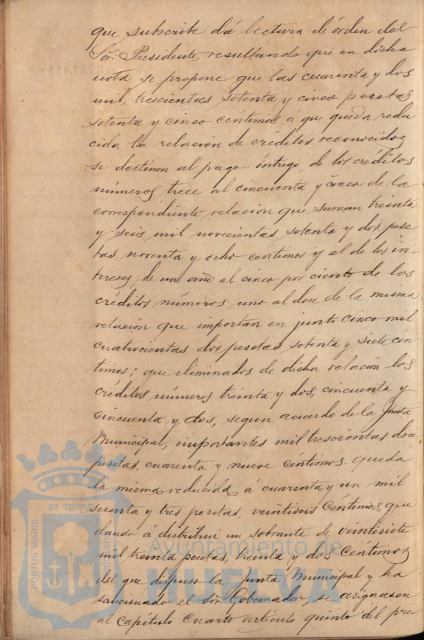 que subscribe dá lectura de órden del
Sor. Presidente, resultando que en dicha
nota se propone que las cuarenta y dos
mil, trescientas setenta y cinco pesetas
setenta y cinco centimos á que queda redu
cida la relación de créditos reconocidos
se destinen al pago integro de los créditos
números trece al cincuenta y cinco de la
correspondiente relación que suman treinta
y seis mil novecientas setenta y dos pese
tas noventa y ocho centimos y al de los in-
tereses de un año al cinco por ciento de los
créditos números uno al doce de la misma
relación que importan en junto cinco mil
cuatrocientas dos pesetas setenta y siete cen
timos; que eliminados de dicha relación los
créditos números treinta y dos, cincuenta y
cincuenta y dos, segun acuerdo de la Junta
Municipal, importantes mil trescientas doce
pesetas, cuarenta y nueve céntimos queda
la misma reducida á cuarenta y un mil
sesenta y tres pesetas, veintiseis céntimos, que
dando á distribuir un sobrante de veintisiete
mil treinta pesetas, treinta y dos centimos
del que dispuso la Junta Municipal y ha
sancionado el Sor. Gobernador, se asignasen
al Capitulo Cuarto articulo quinto del pre
PORTUS MARIS ET TERRAE
Ayuntamiento de
HUELVA